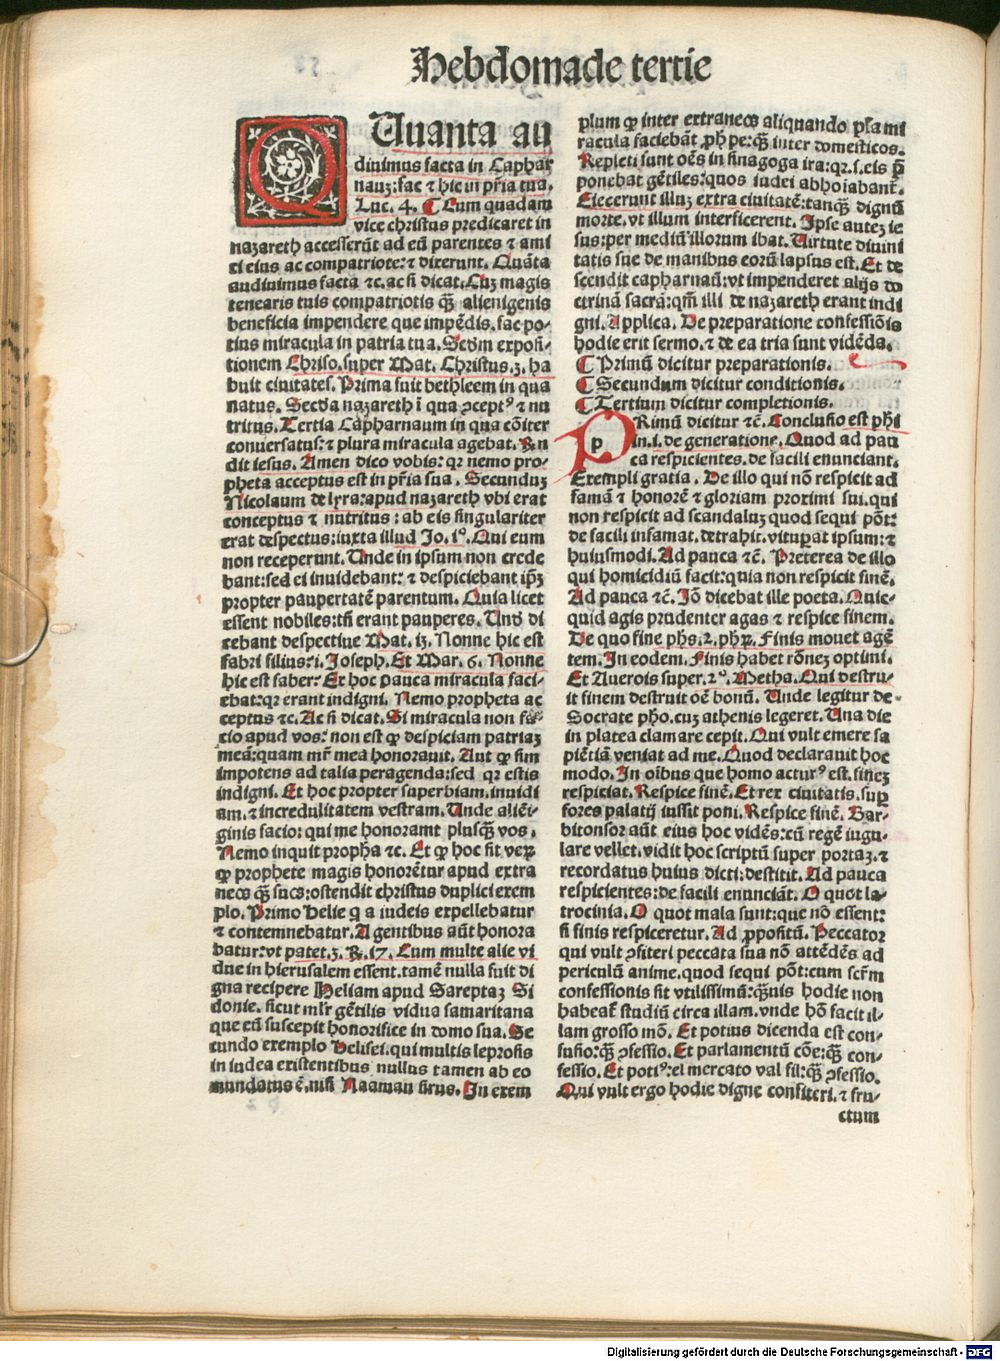 Hebdomade tertie
QUuanta au
diuimus facta in Caphar
nauꝫ: fac ⁊ hic in pr̃ia tua.
Luc. 4. ¶ Cum quadam
vice christus predicaret in
nazareth accesserũt ad eũ parentes ⁊ ami
ci eius ac compatriote: ⁊ dixerunt. Quãta
audiuimus facta ⁊c. ac si dicat. Cuꝫ magis
tenearis tuis compatriotis q̃ꝫ alienigenis
beneficia impendere que impẽdis. fac po-
tius miracula in patria tua. Scdm exposi-
tionem Chriso. super Mat. Christus. 3. ha
buit ciuitates. Prima fuit bethleem in qua
natus. Scd̃a nazareth ĩ qua ꝯceptꝰ ⁊ nu
tritus. Tertia Capharnaum in qua cõiter
conuersatus: ⁊ plura miracula agebat. Rñ
dit iesus. Amen dico vobis: qꝛ nemo pro-
pheta acceptus est in pr̃ia sua. Secunduꝫ
Nicolaum de lyra: apud nazareth vbi erat
conceptus ⁊ nutritus: ab eis singulariter
erat despectus: iuxta illud Jo. i°. Qui eum
non receperunt. Unde in ipsum non crede
bant: sed ei inuidebant: ⁊ despiciebant ip̃ꝫ
propter paupertatẽ parentum. Quia licet
essent nobiles: tñ erant pauperes. Unð di
cebant despectiue Mat. i3. Nonne hic est
fabri filius: i. Joseph. Et Mar. 6. Nonne
hic est faber? Ex hoc pauca miracula faci-
ebat: qꝛ erant indigni. Nemo propheta ac
ceptus ⁊c. Ac si dicat. Si miracula non fa-
cio apud vos: non est ꝙ despiciam patriaꝫ
meã: quam mr̃ mea honorauit. Aut ꝙ sim
impotens ad talia peragenda: sed qꝛ estis
indigni. Et hoc propter superbiam, inuidi
am. ⁊ incredulitatem vestram. Unde aliẽi-
ginis facio: qui me honoramt plusq̃ꝫ vos.
Nemo inquit propha ⁊c. Et ꝙ hoc sit veꝝ
ꝙ prophete magis honorẽtur apud extra
neos q̃ꝫ suos: ostendit christus duplici exem
plo. Primo Helie q a iudeis expellebatur
⁊ contemnebatur. A gentibus aũt honora
batur: vt patet. 3. R̃. i7. Cum multe alie vi
due in hierusalem essent. tamẽ nulla fuit di
gna recipere Heliam apud Sareptaꝫ Si
donie. sicut ml̃r gẽtilis vidua samaritana
que eũ suscepit honorifice in domo sua. Se
cundo exemplo Helisei. qui multis leprosis
in iudea existentibus nullus tamen ab eo
mundatus ẽ. nisi Naaman sirus. In exem
plum ꝙ inter extraneos aliquando pl̃a mi
racula faciebãt ꝓph̃pe: q̃ꝫ inter domesticos.
Repleti sunt oẽs in sinagoga ira: qꝛ. s. eis p̃
ponebat gẽtiles: quos iudei abhoiabant̃.
Eiecerunt illuꝫ extra ciuitatẽ: tanq̃ꝫ dignũ
morte. vt illum interficerent. Ipse auteꝫ ie
sus: per mediũ illorum ibat. Uirtute diuini
tatis sue de manibus eorũ lapsus est. Et de
scendit capharnaũ: vt impenderet alijs do
ctrinã sacrã: qm̃ illi de nazareth erant indi
gni. Applica. De preparatione confessiõis
hodie erit sermo. ⁊ de ea tria sunt vidẽda.
¶ Primũ dicitur preparationis.
¶ Secundum dicitur conditionis.
¶ Tertium dicitur completionis.
PRimũ dicitur ⁊c̃. Conclusio est ph̃i
in. i. de generatione. Quod ad pau
ca respicientes. de facili enunciant.
Exempli gratia. De illo qui nõ respicit ad
famã ⁊ honorẽ ⁊ gloriam proximi sui. qui
non respicit ad scandaluꝫ quod sequi põt:
de facili infamat. detrahit. vituꝑat ipsum: ⁊
huiusmodi. Ad pauca ⁊c̃. Preterea de illo
qui homicidiũ facit: quia non respicit finẽ.
Ad pauca ⁊c̃. Jõ dicebat ille poeta. Quic-
quid agis prudenter agas ⁊ respice finem.
De quo fine ph̃s. 2. ph̃ꝝ. Finis mouet agẽ
tem. In eodem. Finis habet rõneꝫ optimi.
Et Auerois super. 2°. Metha. Qui destru-
it finem destruit oẽ bonũ. Unde legitur de-
Socrate ph̃o. cuꝫ athenis legeret. Una die
in platea clamare cepit. Qui vult emere sa
piẽtiã veniat ad me. Quod declarauit hoc
modo. In oĩbus que homo acturꝰ est. fineꝫ
respiciat. Respice finẽ. Et rex ciuitatis. suꝑ
fores palatij iussit poni. Respice finẽ. Bar-
bitonsor aũt eius hoc vidẽs: cũ regẽ iugu-
lare vellet. vidit hoc scriptũ super portaꝫ. ⁊
recordatus huius dicti: destitit. Ad pauca
respicientes: de facili enunciãt. O quot la-
trocinia. O quot mala sunt: que nõ essent:
si finis respiceretur. Ad ꝓpositũ. Peccator
qui vult ꝯfiteri peccata sua nõ attẽdẽs ad
periculũ anime. quod sequi põt: cum scr̃m
confessionis sit vtilissimũ: q̃ꝫuis hodie non
habeat̃ studiũ circa illam. vnde hõ facit il-
lam grosso mõ. Et potius dicenda est con-
fusio: q̃ꝫ ꝯfessio. Et parlamentũ cõe: q̃ꝫ con-
fessio. Et potiꝰ: el mercato val fil: q̃ꝫ ꝯfessio.
Qui vult ergo hodie digne confiteri. ⁊ fru-
ctum
Digitalisierung gefördert durch die Deutsche Forschungsgemeinschaft - DFG